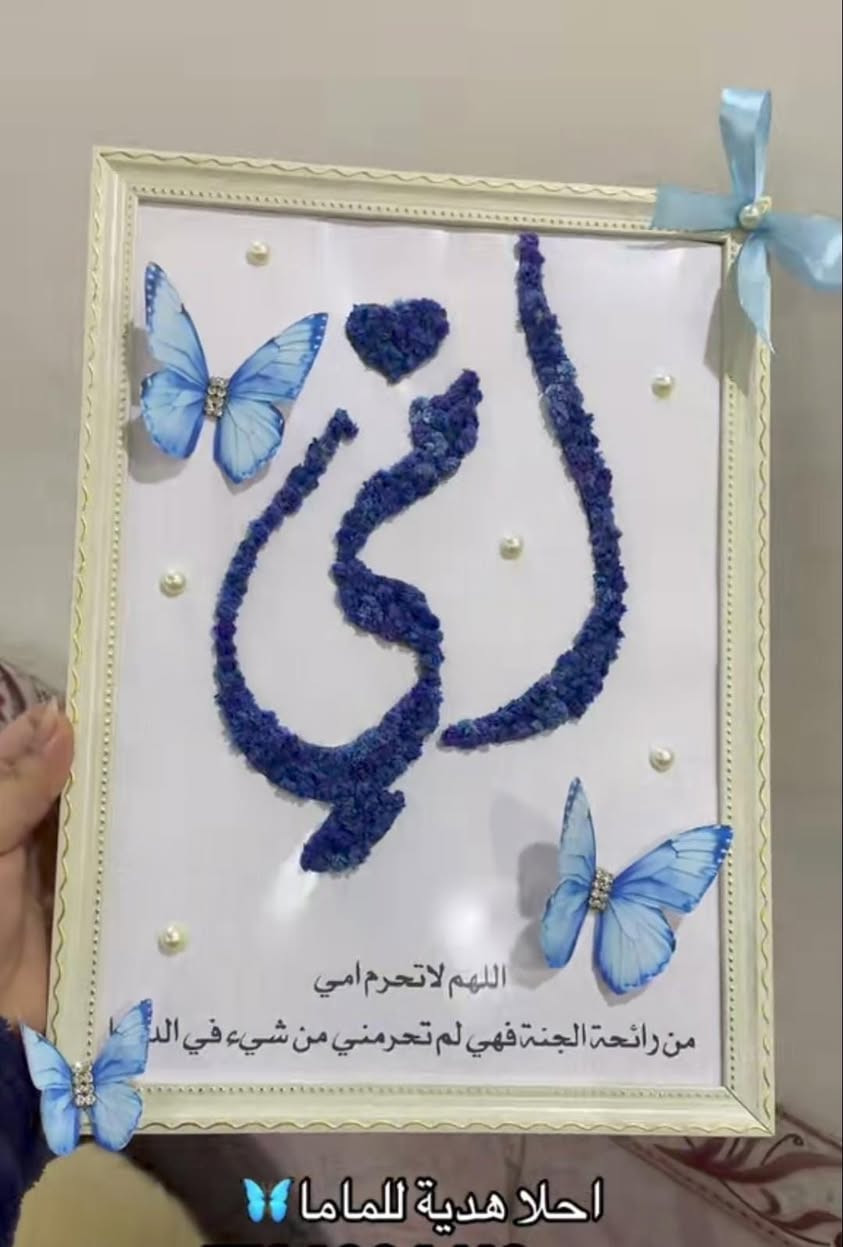 امي
اللهم لا تحرم امي
من رائحة الجنة فهي لم تحرمني من شيء في
احلا هدية للماما 🦋